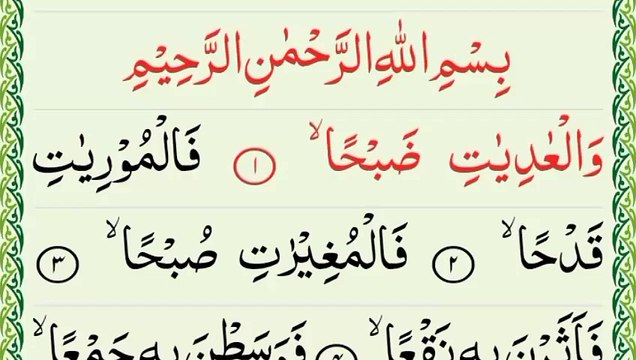 بِسْمِ اللّٰهِ الرَّحْمٰنِ الرَّحِيْمِ
وَالْعٰدِيٰتِ ضَبْحًا ۙ ۝۱ فَالْمُوْرِيٰتِ
قَدْحًا ۙ ۝۲ فَالْمُغِيْرٰتِ صُبْحًا ۙ ۝۳
فَاَثَرْنَ بِهٖ نَقْعًا ۙ ۝۴ فَوَسَطْنَ بِهٖ جَمْعًا ۙ